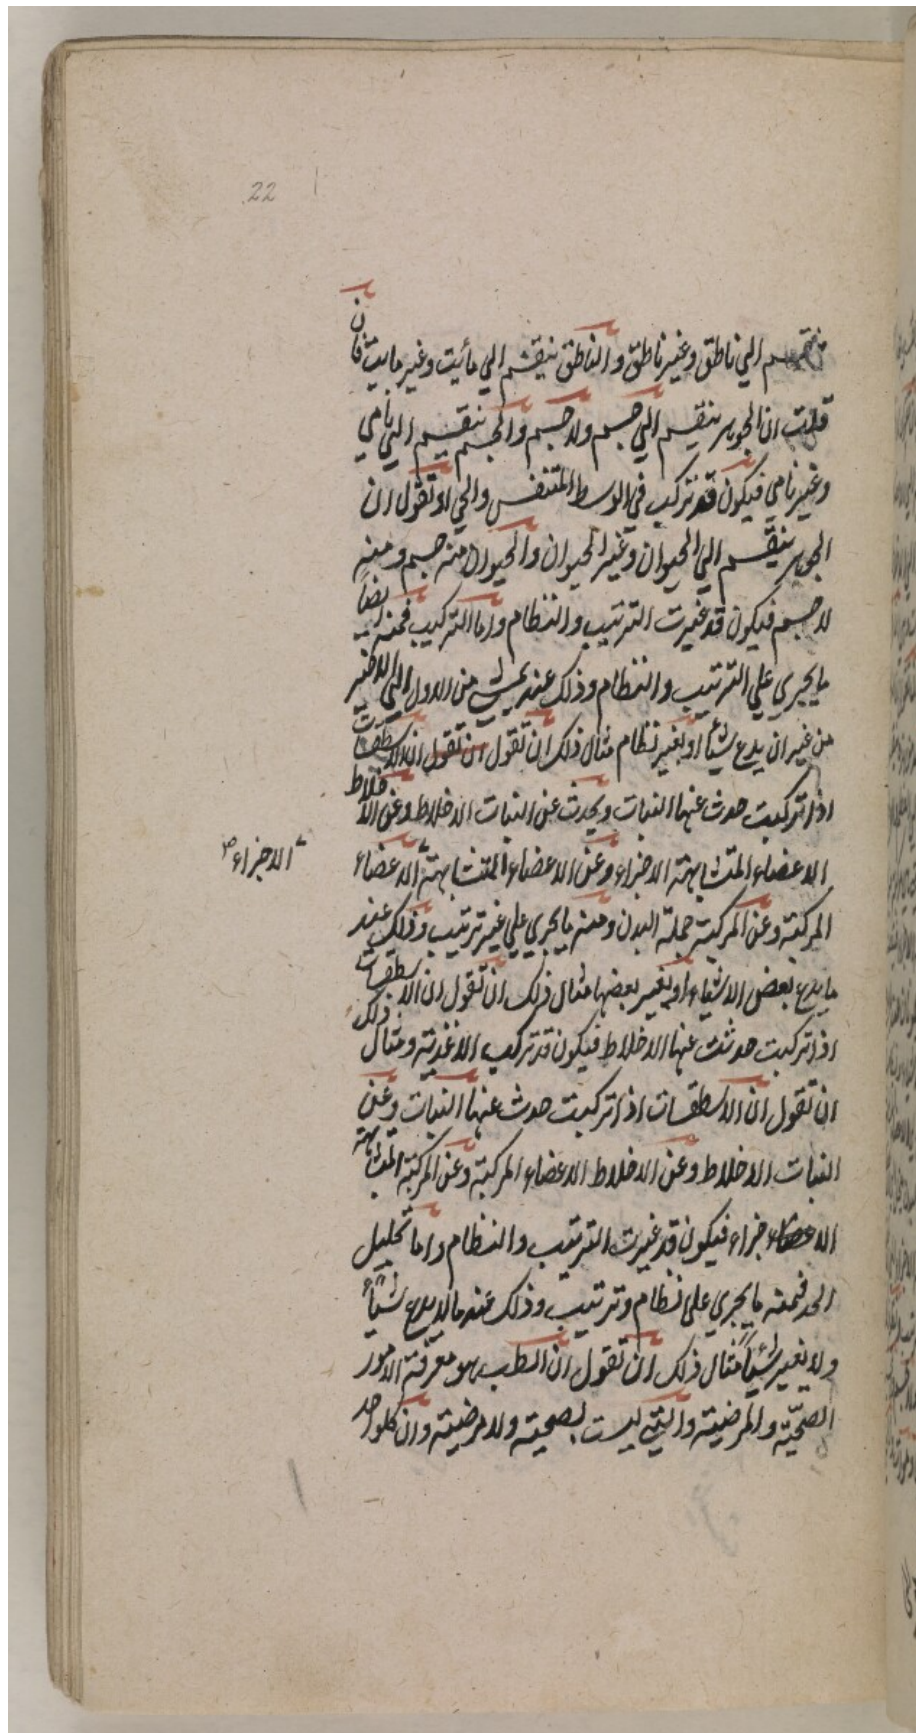 22
ينقسم الي ناطق وغير ناطق والناطق ينقسم الي مائيت وغير مايت فان
قلت ان الجوهر ينقسم الي جسم ولا جسم والجسم ينقسم الي نامي
وغير نامي فيكون قد تركب في الوسط المتنفس والحي ولا تقول ان
الجوهر ينقسم الي الحيوان وغير الحيوان والحيوان منه جسم ومنه
لا جسم فيكون قد غيرت الترتيب والنظام واما التركيب فمنه ايضاً
ما يجري علي الترتيب والنظام وذلك عند من الاول الي الاخير
من غير ان يدع شيئاً او يغير نظام مثال ذلك ان تقول ان تقول ان الاسطقسات
اذا تركبت حدث عنها النبات ويحدث عن النبات الاخلاط وعن الاخلاط
الاعضاء المتشابهة الاجزاء وعن الاعضاء المتشابهة الاعضاء
الاجزاء صح
المركبة وعن المركبة جملة البدن ومنه ما يجري علي غير ترتيب وذلك عند
ما يدع بعض الاشياء او يغير بعضها مثال ذلك ان تقول ان الاسطقسات
اذا تركبت حدثت عنها الاخلاط فيكون قد تركب الاغذية ومثال ذلك
ان تقول ان الاسطقسات اذا تركبت حدث عنها النبات وعن
النبات الاخلاط وعن الاخلاط الاعضاء المركبة وعن المركبة المتشابهة
الاعضاء جزاء فيكون قد غيرت الترتيب والنظام واما تحليل
الحد فمنه ما يجري علي نظام وترتيب وذلك عند ما لا يدع شيئاً
ولا يغير شيئاً مثال ذلك ان تقول ان الطب هو معرفة الامور
الصحية والمرضية والتي ليست بصحية ولا مرضية وان كلواحد